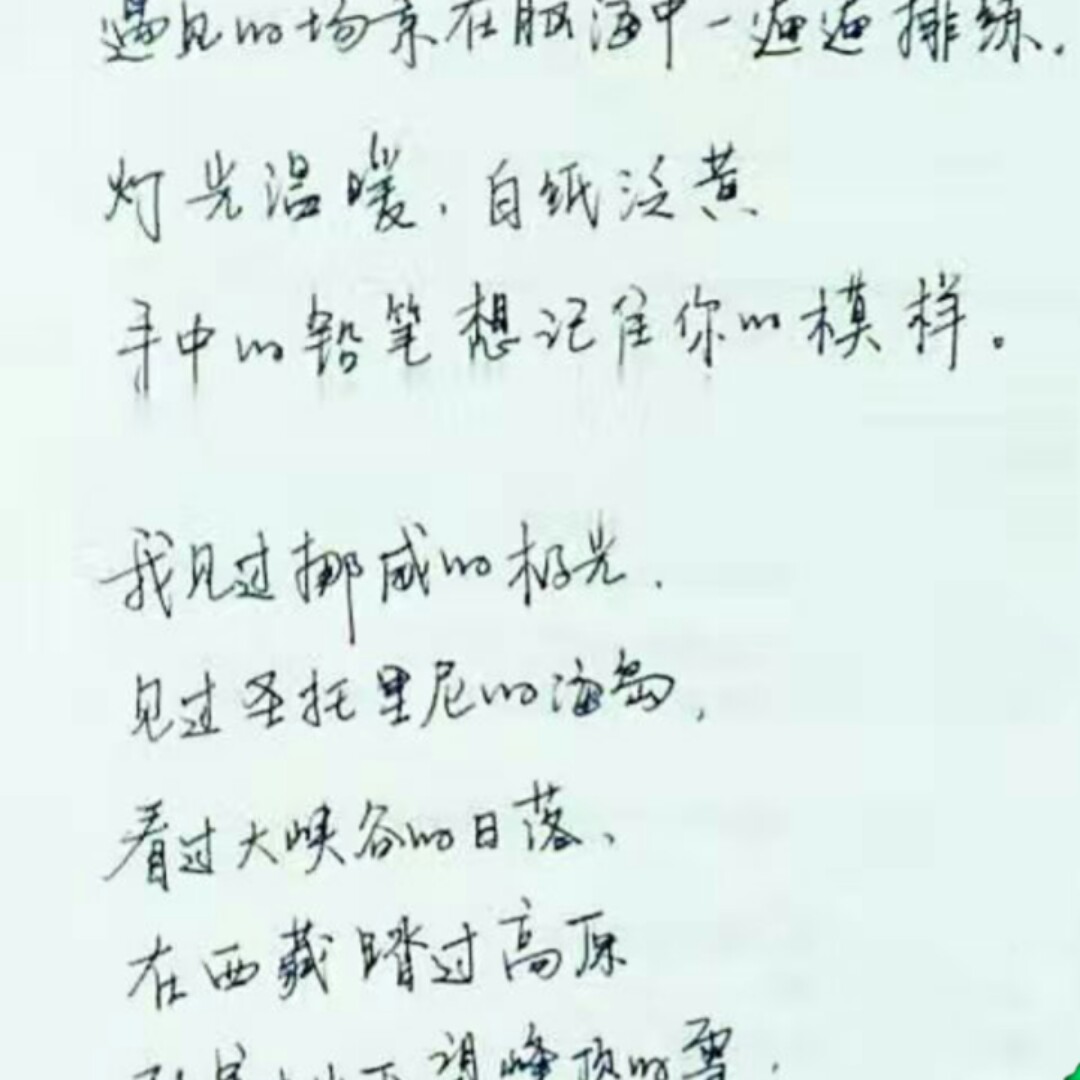 遇见的场景在脑海中一遍遍排练.
灯光温暖.白纸泛黄
手中的铅笔想记住你的模样。
我见过挪威的极光.
见过圣托里尼的海岛,
看过大峡谷的日落、
在西藏踏过高原
望峰顶的雪.